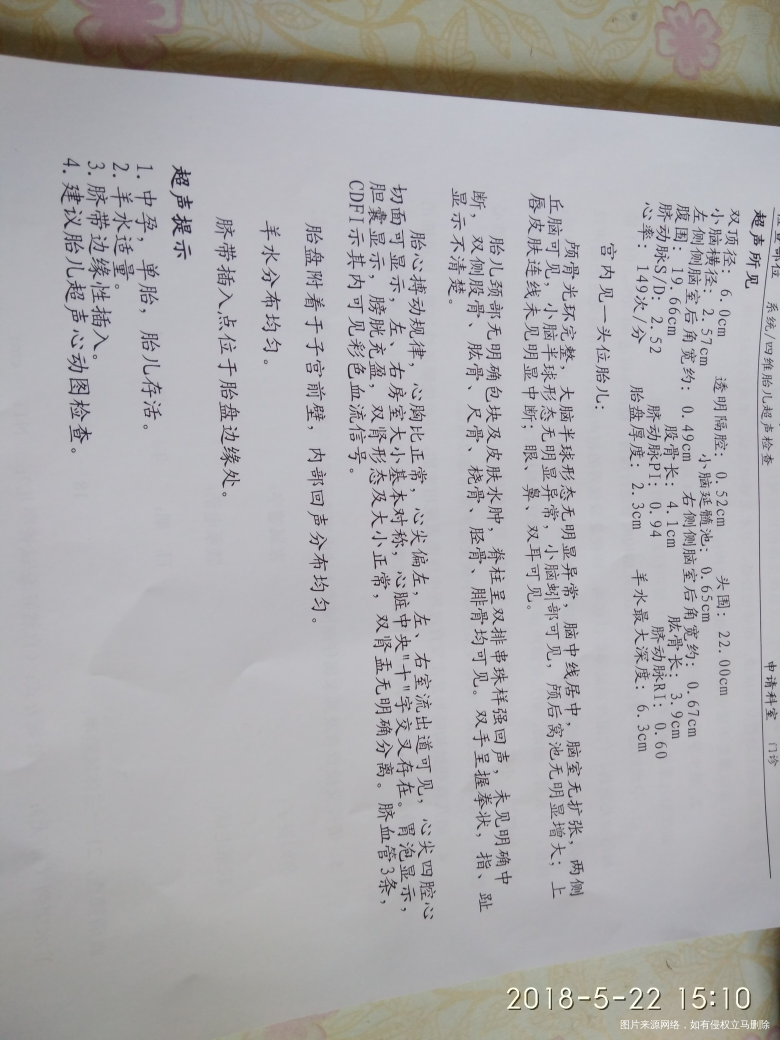 系统/四维胎儿超声检查 申请科室 门诊
超声所见
双顶径: 6.0cm 透明隔腔: 0.52cm 头围: 22.00cm
小脑横径: 2.57cm 小脑延髓池: 0.65cm
左侧侧脑室后角宽约: 0.49cm 右侧侧脑室后角宽约: 0.67cm
腹围: 19.66cm 股骨长: 4.1cm 肱骨长: 3.9cm
脐动脉S/D: 2.52 脐动脉PI: 0.94 脐动脉RI: 0.60
心率: 149次/分 胎盘厚度: 2.3cm 羊水最大深度: 6.3cm
宫内见一头位胎儿:
颅骨光环完整, 大脑半球形态无明显异常, 脑中线居中, 脑室无扩张, 两侧
丘脑可见, 小脑半球形态无明显异常, 小脑蚓部可见, 颅后窝池无明显增大; 上
唇皮肤连线未见明显中断; 眼、鼻、双耳可见。
胎儿颈部无明确包块及皮肤水肿, 脊柱呈双排串珠样强回声, 未见明确中
断, 双侧股骨、肱骨、尺骨、桡骨、胫骨、腓骨均可见。双手呈握拳状, 指、趾
显示不清楚。
胎心搏动规律, 心胸比正常, 心尖偏左, 左、右室流出道可见, 心尖四腔心
切面可显示, 左、右房室大小基本对称, 心脏中央"十"字交叉存在。胃泡显示,
胆囊显示, 膀胱充盈, 双肾形态及大小正常, 双肾盂无明确分离。脐血管3条,
CDFI示其内可见彩色血流信号。
胎盘附着于子宫前壁, 内部回声分布均匀。
羊水分布均匀。
脐带插入点位于胎盘边缘处。
超声提示
1. 中孕, 单胎, 胎儿存活。
2. 羊水适量。
3. 脐带边缘性插入。
4. 建议胎儿超声心动图检查。
2018-5-22 15:10
图片来源网络，如有侵权立马删除